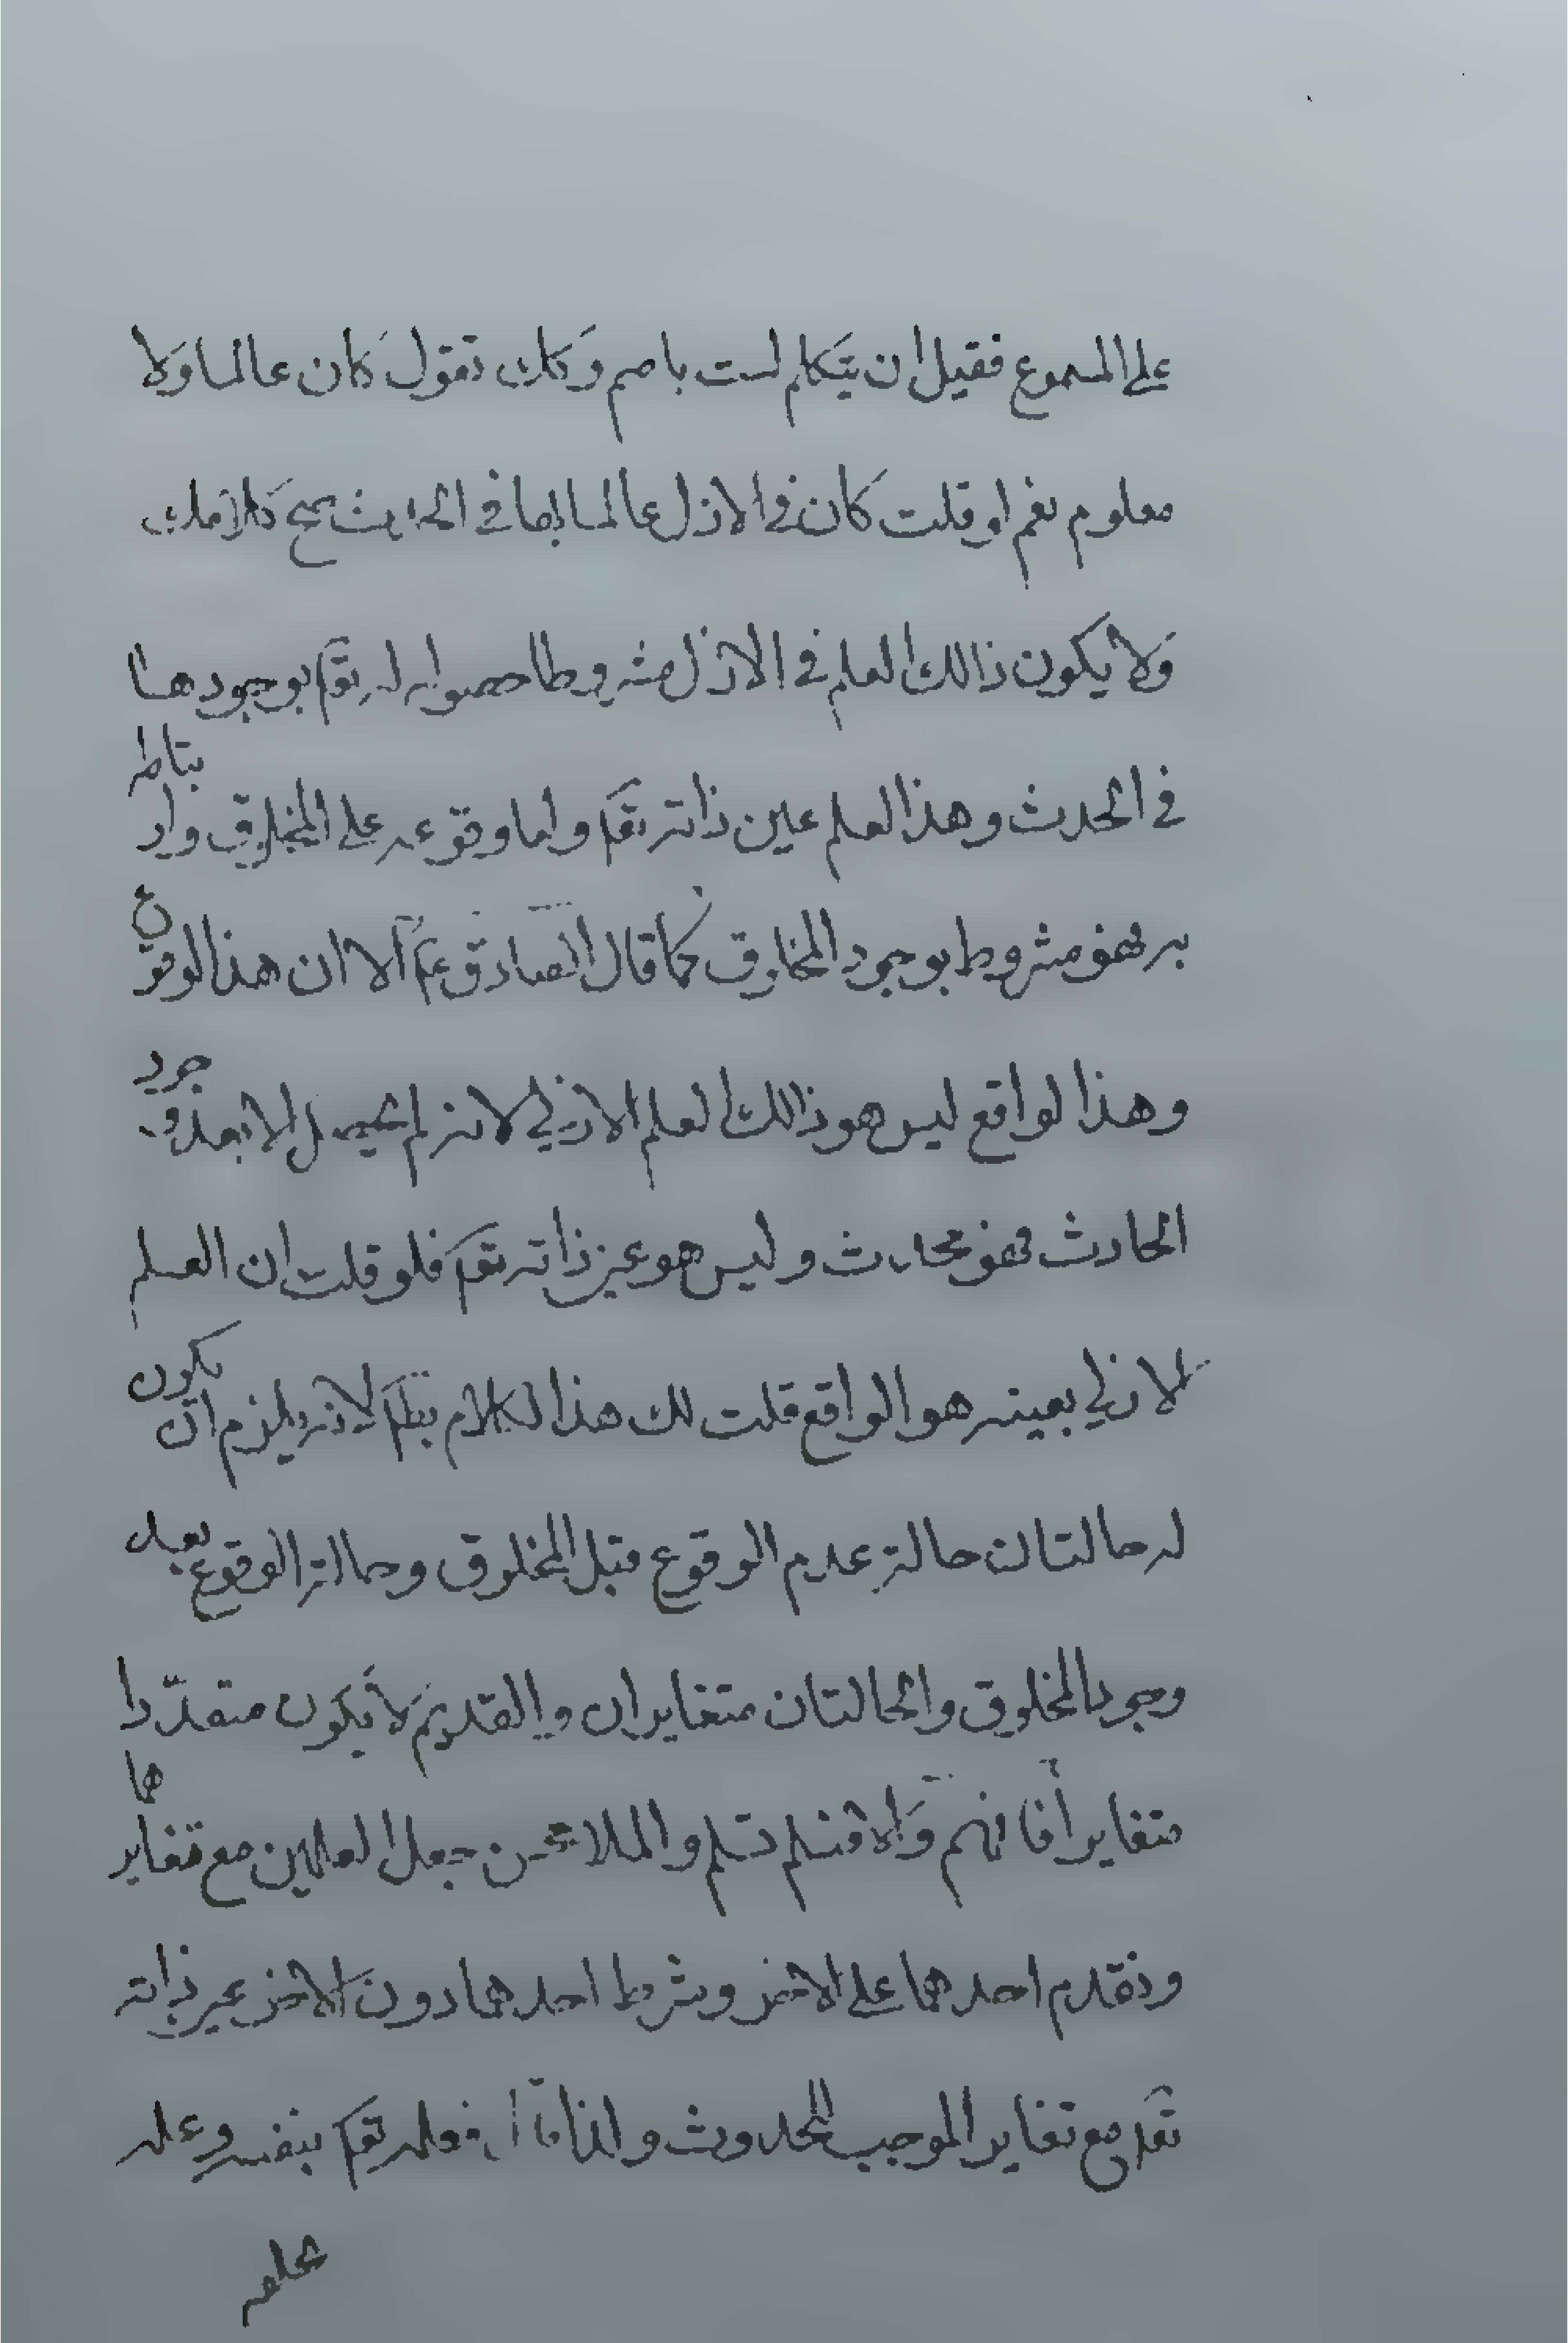 على المسموع فقيل ان يتكلم لست باصم وكك تقول كان عالما ولا
معلوم نعم لو قلت كان في الازل عالما بها في الحدث صح كلامك
ولا يكون ذالك العلم في الازل مشروطا حصوله له تعم بوجودها
في الحدث وهذا العلم عين ذاته تعم واما وقوعه على المخلوق وارتباطه
به فهو مشروط بوجود المخلوق كما قال الصادق عم الا ان هذا الوقوع
وهذا لواقع ليس هو ذالك لعلم الازلي لانه لم يحصل الا بعد وجود
الحادث فهو محادث وليس هو عين ذاته تعم فلو قلت ان العلم
لازلي بعينه هو الواقع قلت لك هذا الكلام بط لانه يلزم ان يكون
له حالتان حالة عدم الوقوع قبل المخلوق وحالة الوقوع بعد
وجود المخلوق والحالتان متغايران والقديم لا يكون متعدّدا
متغايرا فافهم والا فسلم تسلم والملا محسن جعل لعلمين مع تغايرهما
وتقدم احدهما على الاخر وشرط احدهما دون الاخر عين ذاته
تعم مع تغاير الموجب للحدوث واذا فعلمه تعم بنفسه وعلمه